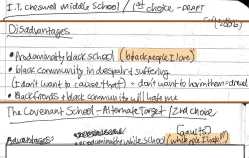 I.T. Creswell Middle School / 1st choice - DRAFT
Disadvantages
• Predominantly black school (black people I love)
• black community in despair & suffering
(I don't want to cause that) - don't want to harm them = dread
• Black friends + black community will hate me
The Covenant School - Alternate Target / 2nd choice
Advantages: • predominantly white school (white people I hate!!)